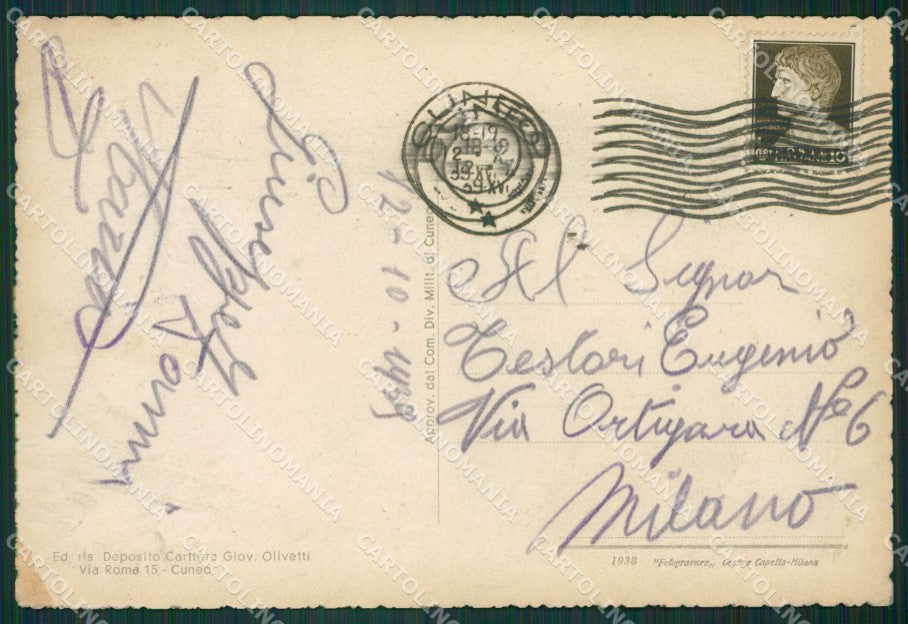 CUNEO
18-19
39-XVI
12 - 10 - 1939
Al Signor
Testori Eugenio
Via Ortigara No 6
Milano
Giuseppe
Approv. dal Com. Div. Milit. di Cuneo
Ed. ris. Deposito Cartiera Giov. Olivetti
Via Roma 15 - Cuneo
1938 "Fotogravure" Cesare Capello-Milano
CARTOLINOMANIA